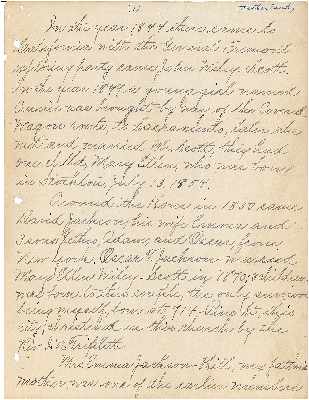 (1)
In the year 1844 there came to
California with the General Fremont
exploring party came John Wiley Scott.
In the year 1849 a young girl named
Annie was brought by way of the Covered
Wagon route, to Sacramento, later she
met and married Mr. Scott, they had
one child, Mary Ellen, who was born
in Stockton, July 13, 1854.
Around the Horn in 1850 came
David Jackson, his wife Emma and
sons, Adam, and Oscar, from
New York. Oscar T. Jackson married
Mary Ellen Wiley Scott in 1870, 8 children
was born to this union, the only survivor
being myself, born at 914 King St., this
city, christened in this church by the
Rev.
Mrs. Emma Jackson-Hill, my father's
mother, was one of the earlier members